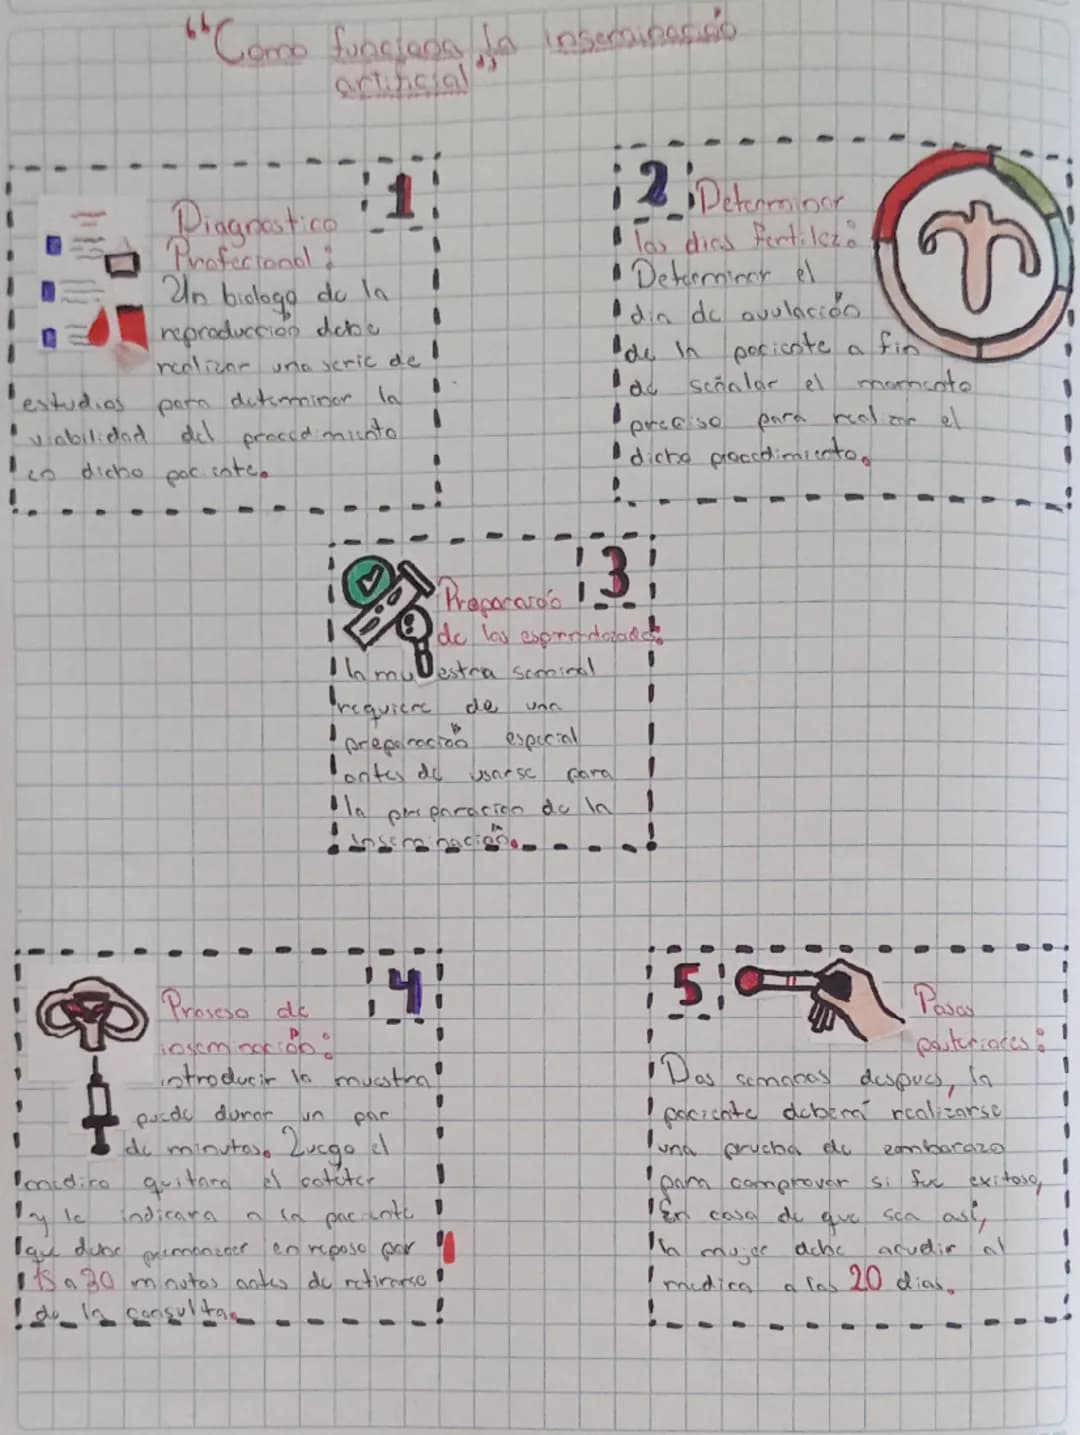 "Como funciona la inseminación
artificial"
1
Diagnostico
Profecional:
Un biologo de la
reproducción debe
realizar una serie de
estudios para determinar la
viabilidad del procedimiento
en dicho paciente.
2
Determinar
los dias fertilez:
Determinar el
dia de ovulación
de la paciente a fin
de señalar el momento
preciso para realizar el
dicho procedimiento.
3
Preparación
de los
la muestra seminal
requiere de una
preparación especial
antes de usarse para
la preparación de la
inseminación.
4
Proseso de
inseminación:
introducir la muestra
puede durar un par
de minutos. Luego el
medico quitara el cateter
y le indicara a la paciente
que debe permanecer en reposo por
15 a 30 minutos antes de retirarse
de la consulta.
5
Pasos
posteriores:
Dos semanas despues, la
paciente deberá realizarse
una prueba de embarazo
para comprovar si fue exitoso,
En caso de que sea así,
la mujer debe acudir al
medico a los 20 dias.